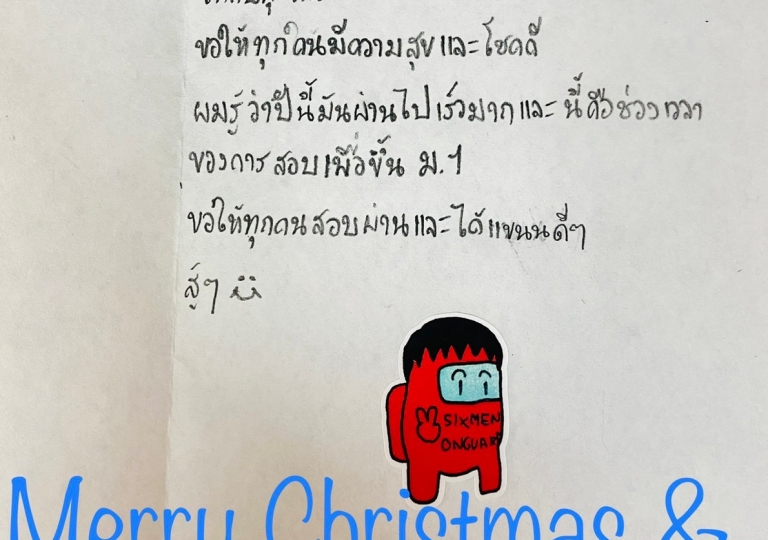 ขอให้ทุกคนมีความสุขและโชคดี
ผมรู้ว่าปีนี้มันผ่านไปเร็วมากและนี้คือช่วงเวลา
ของการสอบเพื่อขึ้น ม.1
ขอให้ทุกคนสอบผ่านและได้แขนนดีๆ
สู้ๆ
SIXMEN
ONGUARD
Merry Christmas &